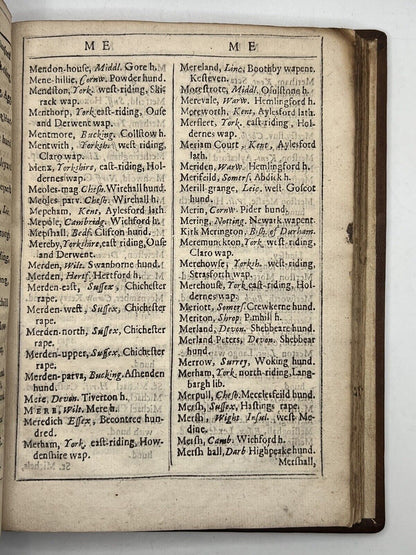 M E
Mendon-house, Middl. Gore h.
Mene-hillie, Cornw. Powder hund.
Mendston, York. west-riding, Skit
rack wap.
Menthorp, York. east-riding, Ouse
and Derwent wap.
Mentmore, Bucking. Collstow h.
Mentwith, Yorksh. west-riding,
Claro wap.
Menx, Yorkshire, east-riding, Hol-
dernes wap.
Meoles-mag Chesh. Wirehall hund.
Meoles parv. Chesh. Wirehall hund.
Mepeham, Kent, Aylesford lath
Mepole, Cambridg. Wichford h.
Mepshall, Bedf. Clifton hund.
Mereby, Yorkshire, east riding, Ouse
and Derwent.
Merden, Wilt. Swanborne hund.
Merden, Hertf. Hertford h.
Merden-east, Sussex, Chichester
rape.
Merden-west, Sussex, Chichester
rape.
Merden-north, Sussex, Chichester
rape.
Merden-upper, Sussex, Chichester
rape.
Merden-parva, Bucking. Ashenden
hund.
Mere, Devon. Tiverton h.
MERE, Wilt. Mere h.
Meredich Essex, Becontree hun-
dred.
Merham, York. east-riding, How-
denshire wap.
M E
Mereland, Linc. Boothby wapent.
Kesteven.
Morestrote, Middl. Osulstone h.
Merevale, Warw. Hemlingford h.
Moreworth, Kent, Aylesford lath.
Merfleet, York. east-riding, Hol-
dernes wap.
Meriam Court, Kent, Aylesford
lath.
Meriden, Warw. Hemlingford h.
Merifeild, Somers. Abdick h.
Merill-grange, Leic. west-Goscot
hund.
Merin, Cornw. Pider hund.
Mering, Notting. Newark wapent.
Kirk Merington, Bish. of Durham.
Meremunckton, York. west-riding,
Claro wap.
Merehowse, Yorksh. west-riding,
Strasforth wap.
Merehouse, York. east-riding, Hol-
dernes wap.
Meriott, Somers. Crewkerne hund.
Meriton, Shrop. Pimhill h.
Merland, Devon. Shebbeare hund.
Merland Peters, Devon. Shebbear
hund.
Merrow, Surrey, Woking hund.
Merham, York. north-riding, Lang-
bargh lib.
Merpull, Chesh. Mecclesfeild hund.
Mersh, Sussex, Hastings rape.
Mersh, Wight Insul. west-Me-
dine.
Mersh, Camb. Wichford h.
Mersh hall, Darb Highpeake hund.
Mershall,